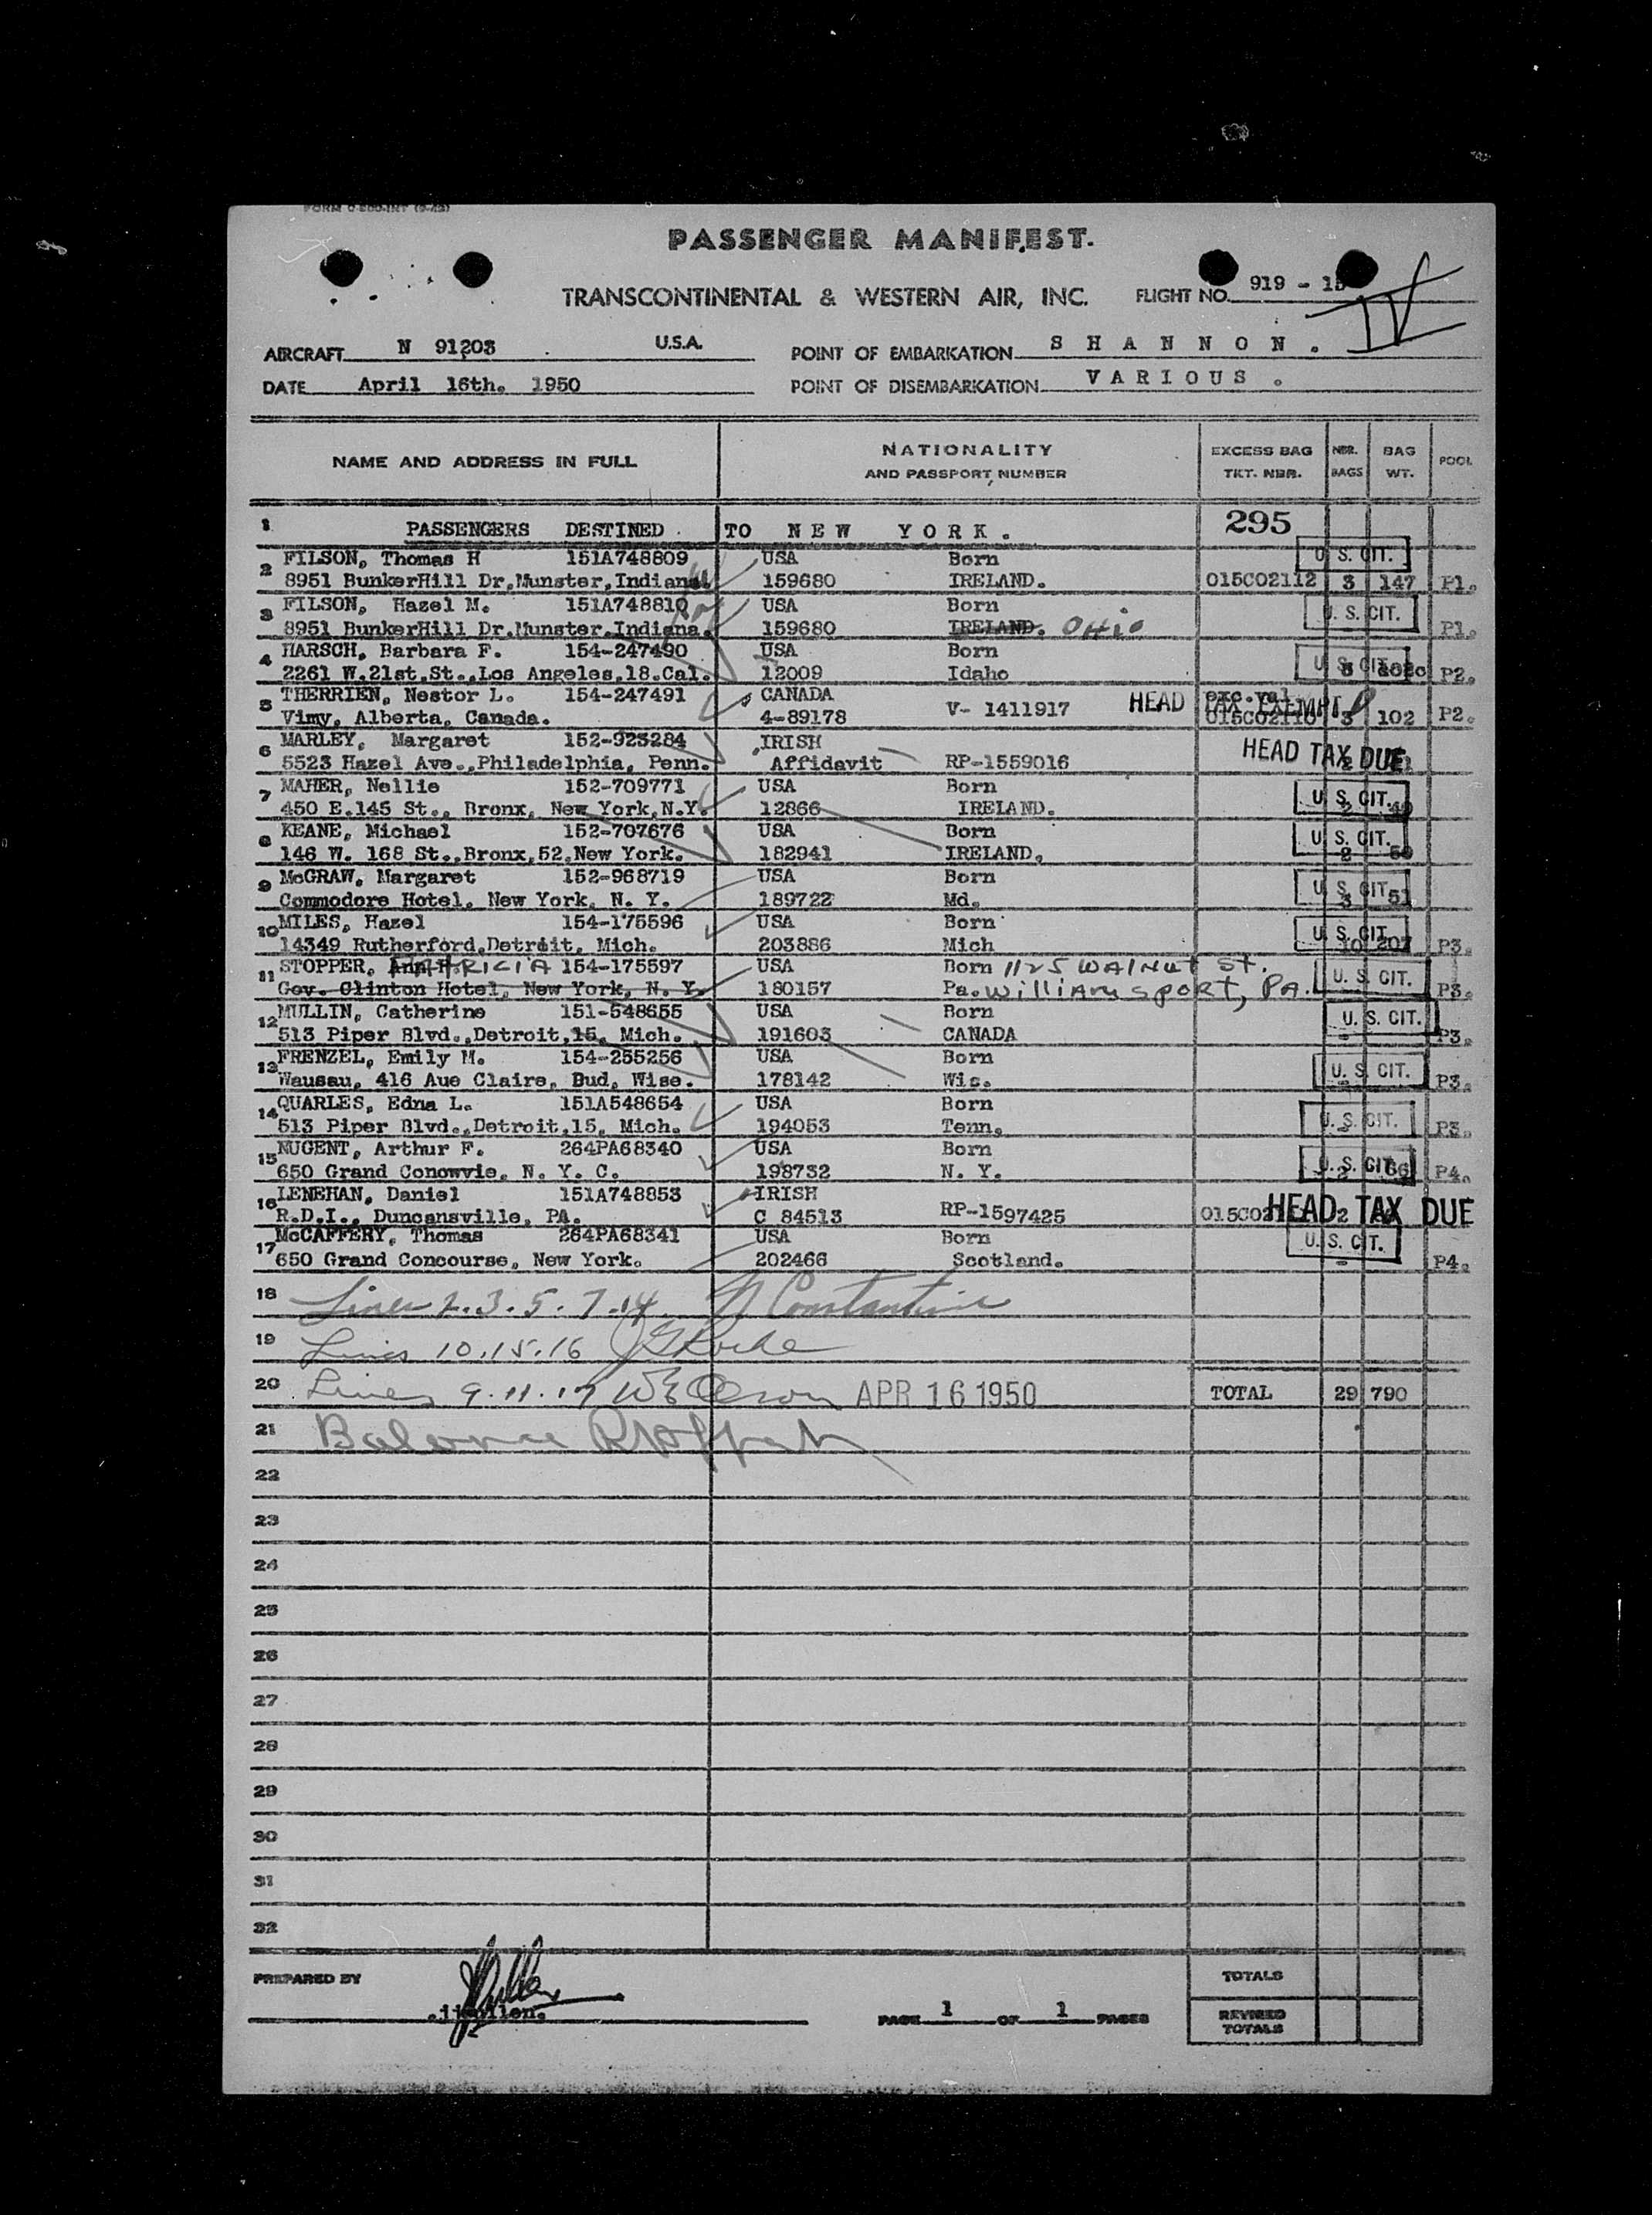 PASSENGER MANIFEST.
TRANSCONTINENTAL & WESTERN AIR, INC. FLIGHT NO. 919 - 15 IV
AIRCRAFT N 91203 U.S.A. POINT OF EMBARKATION S H A N N O N .
DATE April 16th. 1950 POINT OF DISEMBARKATION V A R I O U S .
NAME AND ADDRESS IN FULL NATIONALITY AND PASSPORT NUMBER EXCESS BAG TKT. NBR. NBR. BAGS BAG WT. POOL
1 PASSENGERS DESTINED TO N E W Y O R K . 295
2 FILSON, Thomas H 151A748809 USA Born U. S. CIT.
8951 BunkerHill Dr,Munster,Indiana 159680 IRELAND. 015C02112 3 147 P1.
3 FILSON, Hazel M. 151A748810 USA Born U. S. CIT.
8951 BunkerHill Dr.Munster.Indiana. 159680 IRELAND. OHio P1.
4 HARSCH, Barbara F. 154-247490 USA Born U. S. CIT.
2261 W.21st.St.,Los Angeles,18.Cal. 12009 Idaho P2.
5 THERRIEN, Nestor L. 154-247491 CANADA V- 1411917 HEAD TAX EXEMPT exc.val
Vimy, Alberta, Canada. 4-89178 015C02110 3 102 P2.
6 MARLEY, Margaret 152-923284 IRISH HEAD TAX DUE
5523 Hazel Ave.,Philadelphia, Penn. Affidavit RP-1559016
7 MAHER, Nellie 152-709771 USA Born U. S. CIT.
450 E.145 St., Bronx, New York,N.Y. 12866 IRELAND.
8 KEANE, Michael 152-707676 USA Born U. S. CIT.
146 W. 168 St.,Bronx,52,New York. 182941 IRELAND. 2
9 McGRAW, Margaret 152-968719 USA Born U. S. CIT.
Commodore Hotel, New York, N. Y. 189722 Md. 3 51
10 MILES, Hazel 154-175596 USA Born U. S. CIT.
14349 Rutherford,Detroit, Mich. 203886 Mich 10 207 P3.
11 STOPPER, PATRICIA 154-175597 USA Born 1125 WAlNut St. U. S. CIT.
Gov. Clinton Hotel, New York, N. Y. 180157 Pa. WilliAmsport, PA. P3.
12 MULLIN, Catherine 151-548655 USA Born U. S. CIT.
513 Piper Blvd.,Detroit,15, Mich. 191603 CANADA - P3.
13 FRENZEL, Emily M. 154-255256 USA Born U. S. CIT.
Wausau, 416 Aue Claire, Bud, Wise. 178142 Wis. - P3.
14 QUARLES, Edna L. 151A548654 USA Born U. S. CIT.
513 Piper Blvd.,Detroit,15, Mich. 194053 Tenn. - P3.
15 NUGENT, Arthur F. 264PA68340 USA Born U. S. CIT.
650 Grand Conowvie, N. Y. C. 198732 N. Y. 2 66 P4.
16 LENEHAN, Daniel 151A748853 IRISH HEAD TAX DUE
R.D.I., Duncansville, PA. C 84513 RP-1597425 2
17 McCAFFERY, Thomas 264PA68341 USA Born U. S. CIT.
650 Grand Concourse, New York. 202466 Scotland. - P4.
18 Lines 2.3.5.7.14 N Constantine
19 Lines 10.15.16
20 Lines 9.11.17 APR 16 1950 TOTAL 29 790
21 Balance
22
23
24
25
26
27
28
29
30
31
32
PREPARED BY TOTALS
PAGE 1 OF 1 PAGES REVISED TOTALS